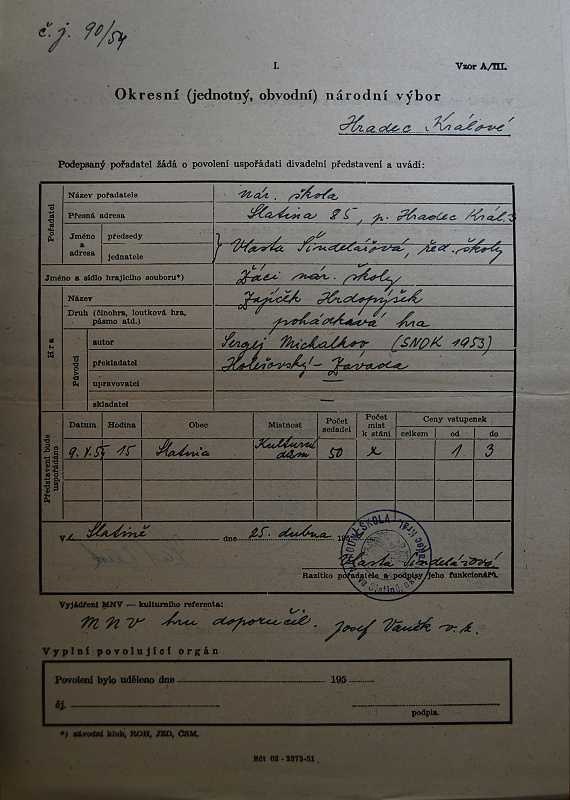 č. j. 90/54
I.
Vzor A/III.
Okresní (jednotný, obvodní) národní výbor
Hradec Králové
Podepsaný pořadatel žádá o povolení uspořádati divadelní představení a uvádí:
Pořadatel
Název pořadatele nár. škola
Přesná adresa Slatina 85, p. Hradec Král.
Jméno a adresa
předsedy
jednatele
Vlasta Šindelářová, řed. školy
Jméno a sídlo hrajícího souboru*) Žáci nár. školy
Hra
Název Zajíček Hrdopýšek
Druh (činohra, loutková hra, pásmo atd.) pohádková hra
Původci
autor Sergej Michalkov (SNDK 1953)
překladatel Holešovský - Závada
upravovatel —
skladatel —
Představení bude uspořádáno
Datum Hodina Obec Místnost Počet sedadel Počet míst k stání Ceny vstupenek
celkem od do
9.V.54 15 Slatina Kulturní dům 50 x 1 3
V Slatině dne 25. dubna 195
NÁRODNÍ ŠKOLA
Vlasta Šindelářová
Razítko pořadatele a podpisy jeho funkcionářů.
Vyjádření MNV — kulturního referenta:
MNV hru doporučil. Josef Vaněk v. r.
Vyplní povolující orgán
Povolení bylo uděleno dne 195
čj.
podpis.
*) závodní klub, ROH, JZD, ČSM.
Sčt 02 - 2373-51